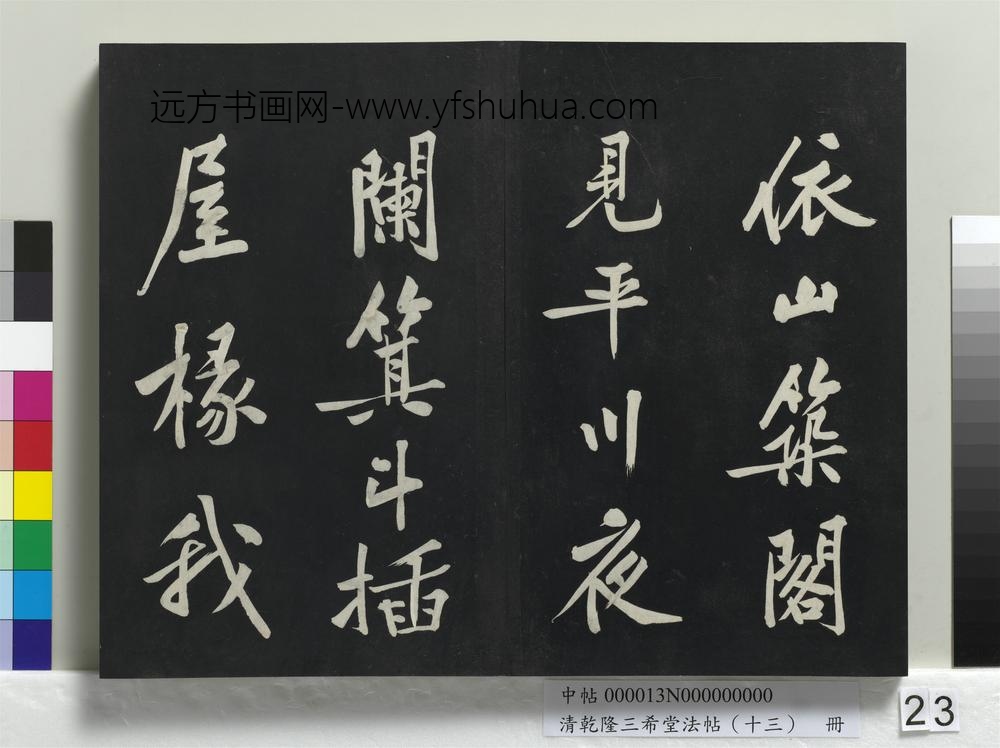 远方书画网-www.yfshuhua.com
依山築閣
見平川夜
闌箕斗插
屋椽我
中帖 000013N000000000
清乾隆三希堂法帖（十三） 冊
23